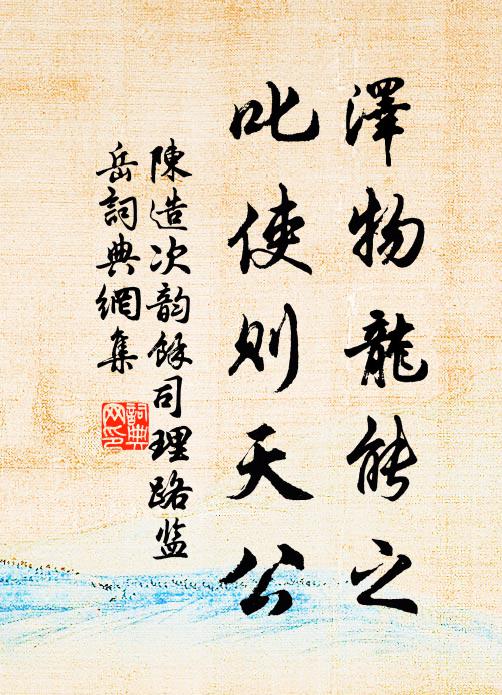 澤物龍能之
叱使則天公
陳造次韵餘司理路监
岳詞典網集
詞典
网印